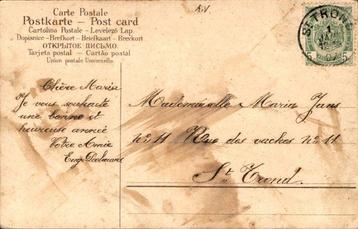 Carte Postale
Postkarte - Post card
Cartolina Postale - Levelező Lap.
Dopisnice - Brefkort - Briefkaart - Brevkort
ОТКРЫТОЕ ПИСЬМО.
Tarjeta postal - Cartão postal
Union postale Universelle.
ST TROND
5
5
Chère Maria
Je vous souhaite
une bonne et
heureuse année
Votre Amie
Mademoiselle Maria Jans
No 11 Rue des vaches No 11
St Trond.